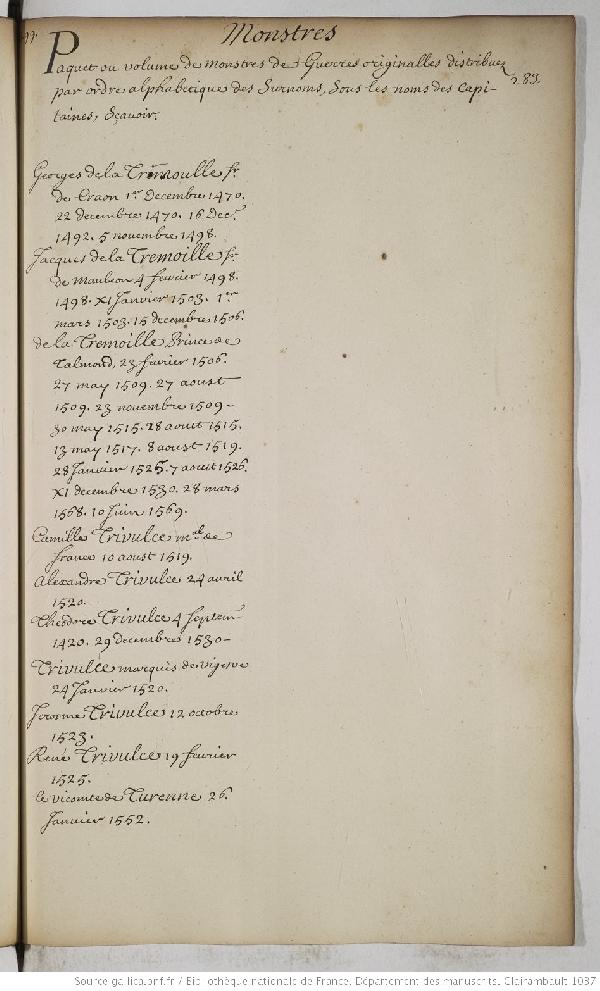 Monstres
Paquet ou volume de monstres de Guerres originalles distribuez
par ordre alphabetique des Surnoms, Sous les noms des Capi-
taines, Sçavoir.
283.
Georges de la Tremoulle sr.
de Craon 1er Decembre 1470.
22 decembre 1470. 16 Decr.
1492. 5 novembre 1498.
Jacques de la Tremoille sr.
de Mauleon 4 fevrier 1498.
1498. XI Janvier 1503. 1er
mars 1503. 15 decembre 1506.
de la Tremoille Prince de
Talmond, 23 fevrier 1506.
27 may 1509. 27 aoust
1509. 23 novembre 1509-
30 may 1515. 28 aoust 1515.
13 may 1517. 8 aoust 1519.
28 Janvier 1525. 7 aoust 1526.
XI decembre 1530. 28 mars
1568. 10 Juin 1569.
Camille Trivulce mal. de
france 10 aoust 1519.
Alexandre Trivulce 24 avril
1520.
Theodore Trivulce 4 septem-
1420. 29 decembre 1530-
Trivulce marquis de vigeve
24 Janvier 1520.
Jerosme Trivulce 12 octobre
1523.
René Trivulce 19 fevrier
1525.
le vicomte de Turenne 26.
Janvier 1552.
Source gallica.bnf.fr / Bibliothèque nationale de France. Département des manuscrits. Clairambault 1087